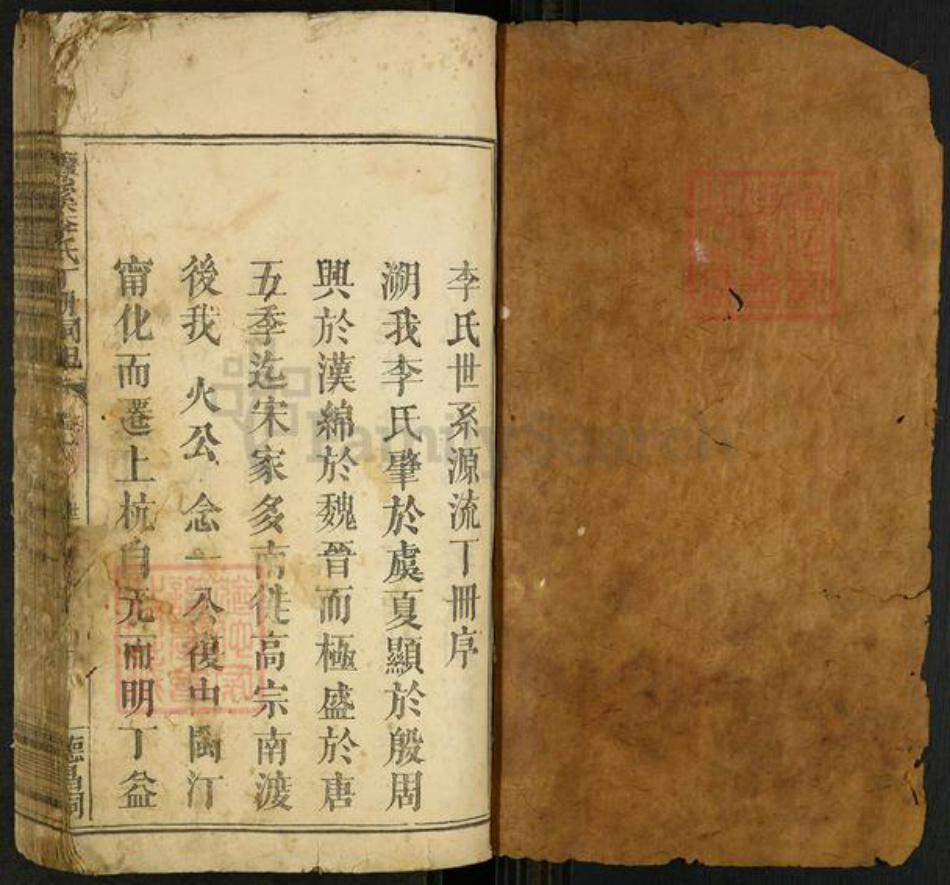 李氏世系源流丁冊序
溯我李氏肇於虞夏顯於殷周
興於漢綿於魏晉而極盛於唐
五季迄宋家多南徙高宗南渡
後我 火公 念一公復由閩汀
甯化而遷上杭自元而明丁益
德昌祠
FamilySearch